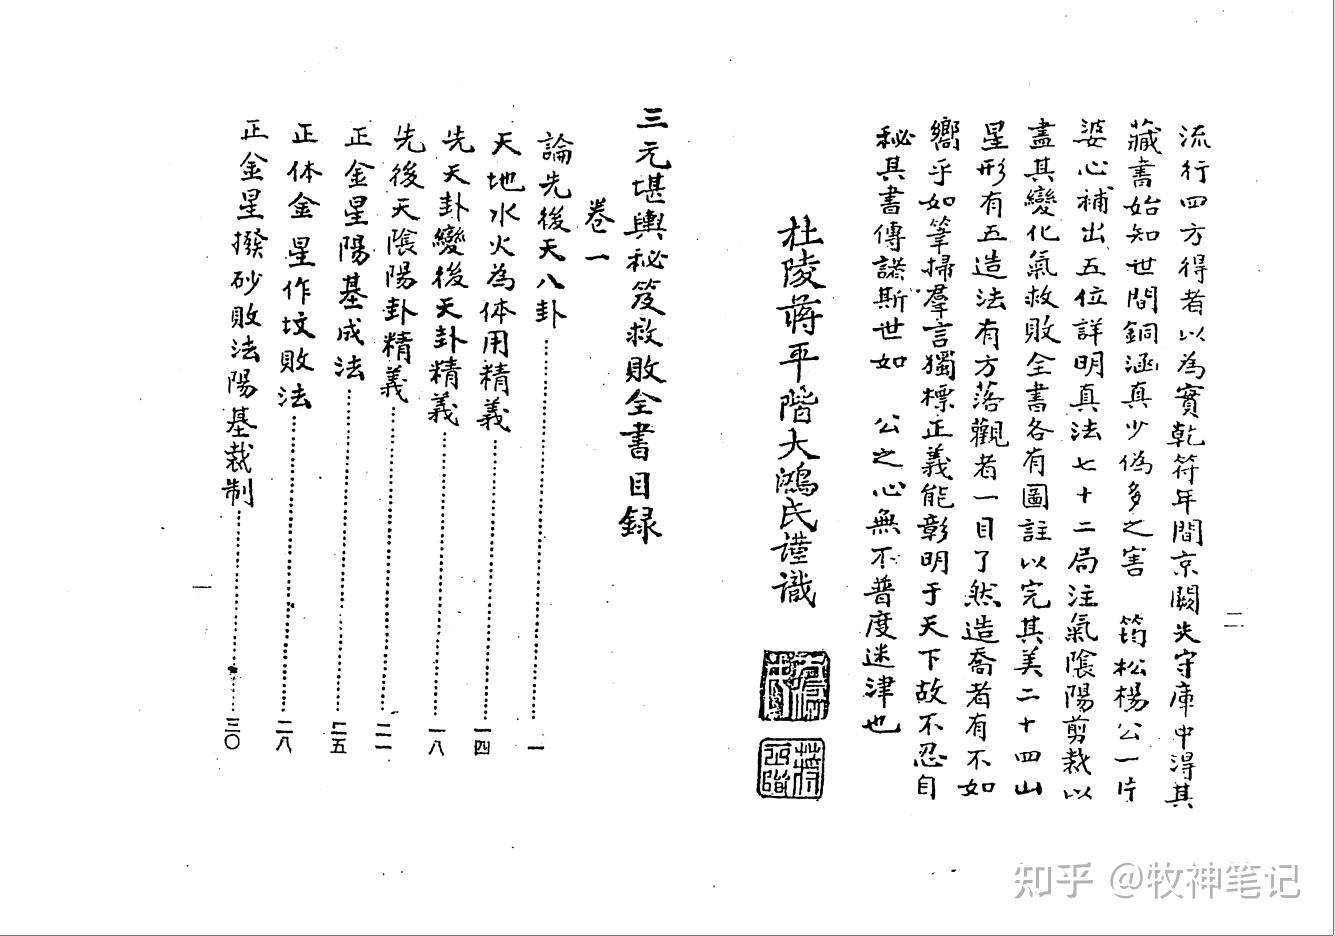 二
流行四方得者以為實乾符年間京闕失守庫中得其
藏書始知世間銅函真少偽多之害　筠松楊公一片
婆心補出五位詳明真法七十二局注氣陰陽剪裁以
盡其變化氣救敗全書各有圖註以完其美二十四山
星形有五造法有方落觀者一目了然造喬者有不如
嚮乎如筆掃羣言獨標正義能彰明于天下故不忍自
秘其書傳諸斯世如　公之心無不普度迷津也
杜陵蔣平階大鴻氏謹識
三元堪輿秘笈救敗全書目録
卷一
論先後天八卦……一
天地水火為体用精義……一四
先天卦變後天卦精義……一八
先後天陰陽卦精義……二一
正金星陽基成法……二五
正体金星作坟敗法……二八
正金星撥砂敗法陽基裁制……三〇
一
知乎 @牧神笔记